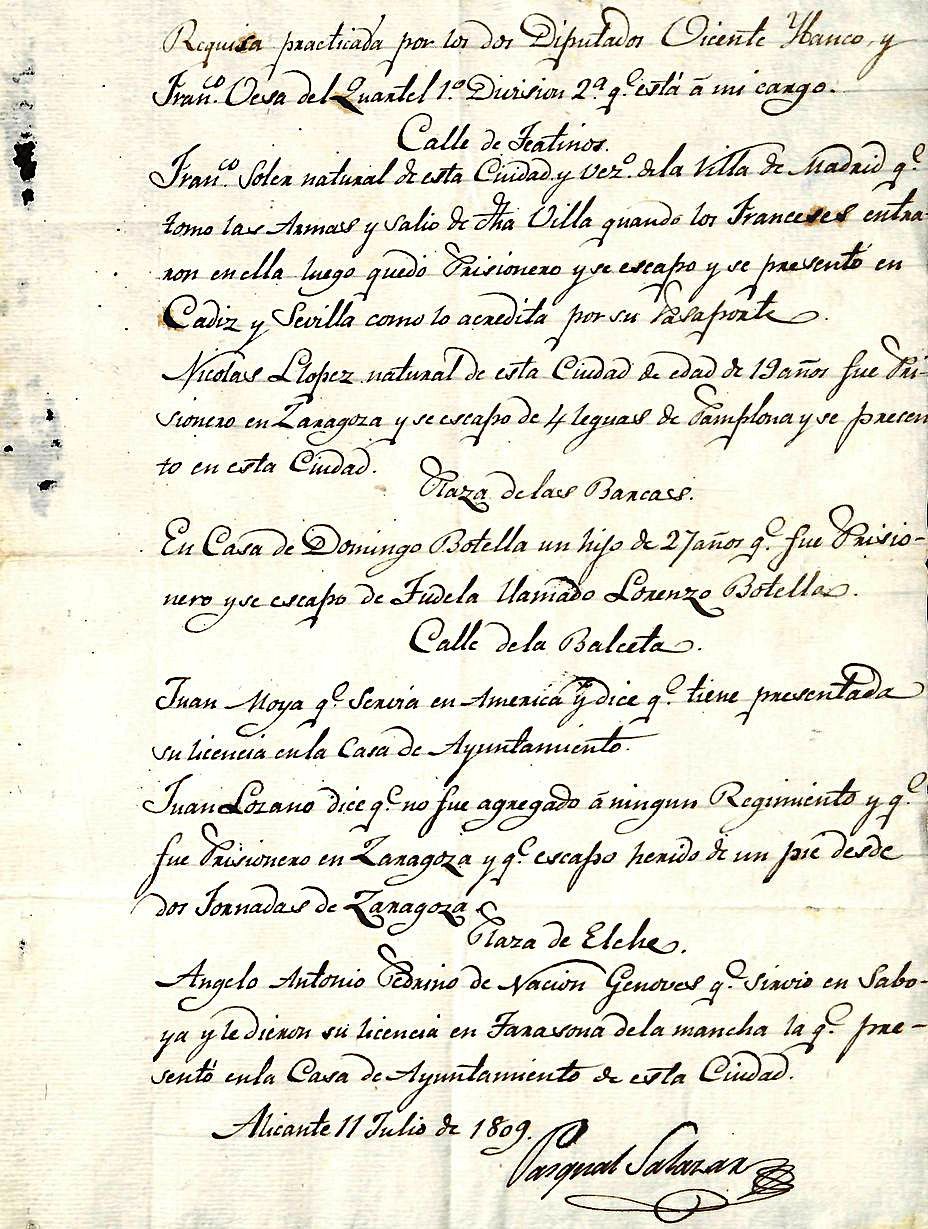 Requisa practicada por los dos Diputados Vicente Ybanco, y
Fran.co Vesa del Quartel 1.o Division 2.a q.e está á mi cargo.
Calle de Teatinos.
Fran.co Soler natural de esta Ciudad y Vez.o de la Villa de Madrid q.e
tomo las Armas y salio de dha Villa quando los Franceses entra-
ron en ella luego quedó Prisionero y se escapo y se presentó en
Cadiz y Sevilla como lo acredita por su Pasaporte.
Nicolas Llopez natural de esta Ciudad de edad de 19 años fue Pri-
sionero en Zaragoza y se escapo de 4 leguas de Pamplona y se presen
to en esta Ciudad.
Plaza de las Barcas.
En Casa de Domingo Botella un hijo de 27 años q.e fue Prisio-
nero y se escapo de Tudela llamado Lorenzo Botella.
Calle de la Balceta.
Juan Moya q.e Servia en America y dice q.e tiene presentada
su licencia en la Casa de Ayuntamiento.
Juan Lozano dice q.e no fue agregado á ningun Regimiento y q.e
fue Prisionero en Zaragoza y q.e escapo herido de un pie desde
dos Jornadas de Zaragoza.
Plaza de Elche.
Angelo Antonio Pedrino de Nacion Genoves q.e sirvio en Sabo-
ya y le dieron su licencia en Tarasona de la mancha la q.e pre-
sentó en la Casa de Ayuntamiento de esta Ciudad.
Alicante 11 Julio de 1809.
Pasqual Salazar